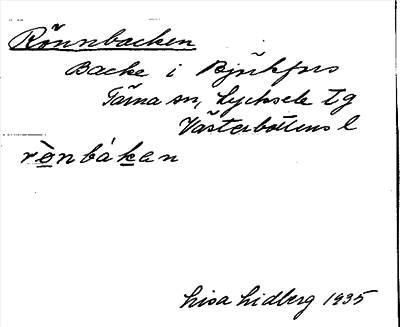 Rönnbacken
Backe i Björkfors
Tärna sn, Lycksele tg
Västerbottens l
rònbákan
Lisa Lidberg 1935